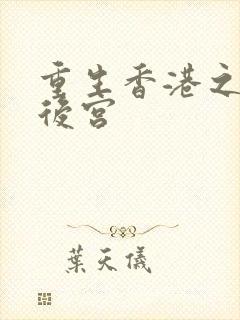 重生香港之
後宮
葉天儀